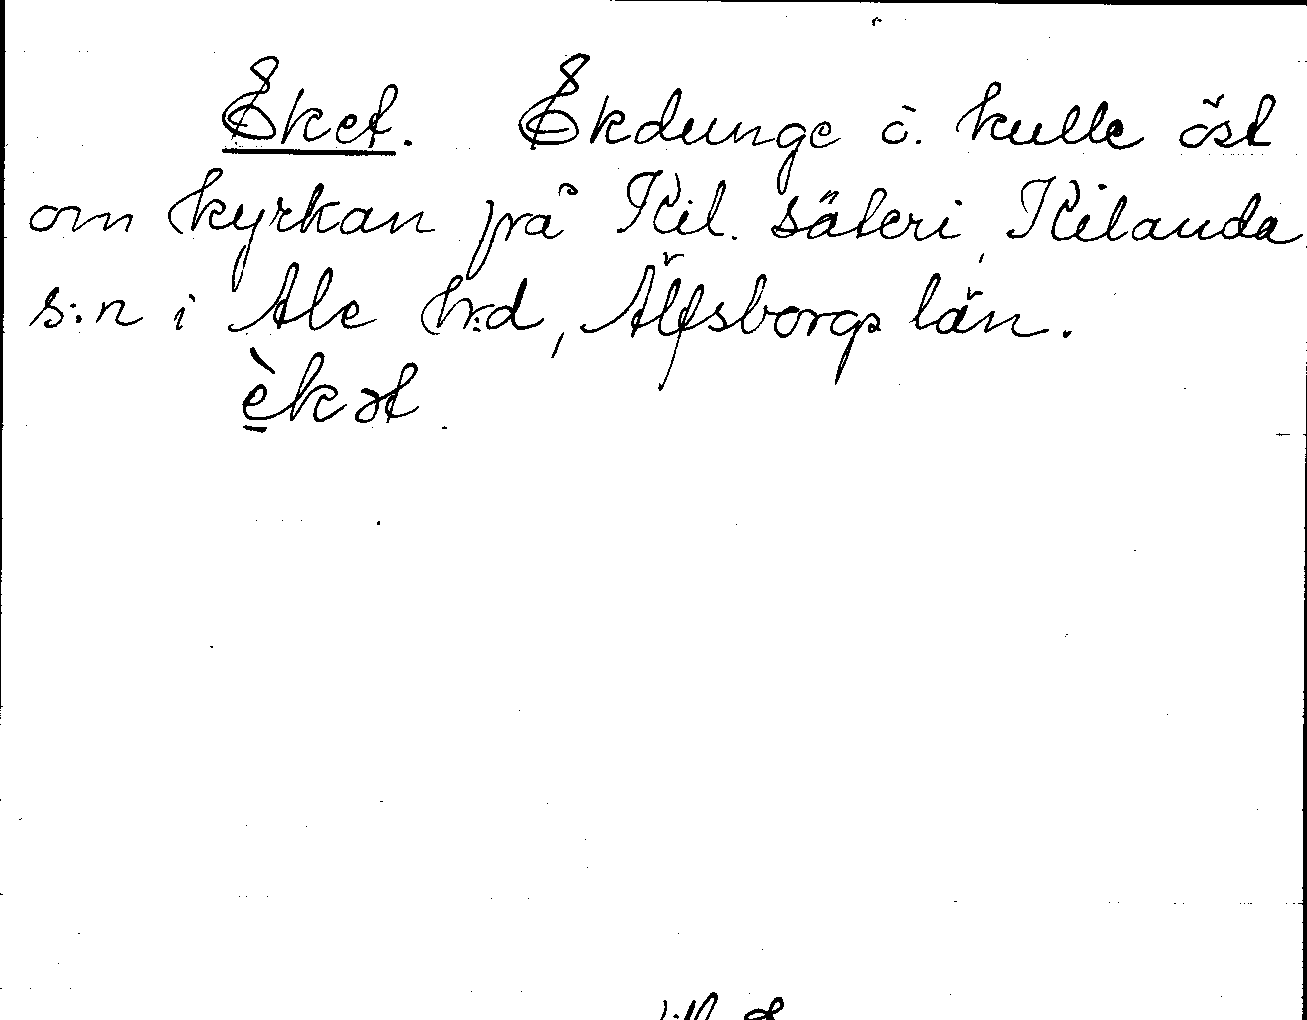 Eket. Ekdunge o. kulle öst
om kyrkan på Kil. säteri, Kilanda
s:n i Ale h:d, Älfsborgs län.
è̠kət